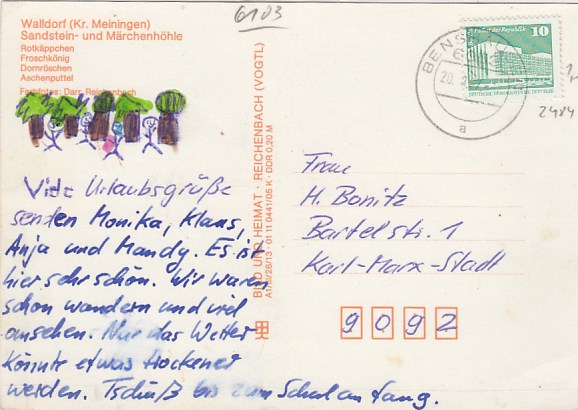 6103
Walldorf (Kr. Meiningen)
Sandstein- und Märchenhöhle
Rotkäppchen
Froschkönig
Dornröschen
Aschenputtel
Farbfotos: Darr, Reichenbach
Viele Urlaubsgrüße
senden Monika, Klaus,
Anja und Mandy. Es ist
hier sehr schön. Wir waren
schon wandern und viel
ansehen. Nur das Wetter
könnte etwas trockener
werden. Tschüß bis zum Schulanfang.
BILD UND HEIMAT · REICHENBACH (VOGTL)
A1/B/26/13 01 11 0441/05 K · DDR 0,20 M
10
Palast der Republik
DEUTSCHE DEMOKRATISCHE REPUBLIK
a
2484
Frau
H. Bonitz
Bartelstr. 1
Karl-Marx-Stadt
9092